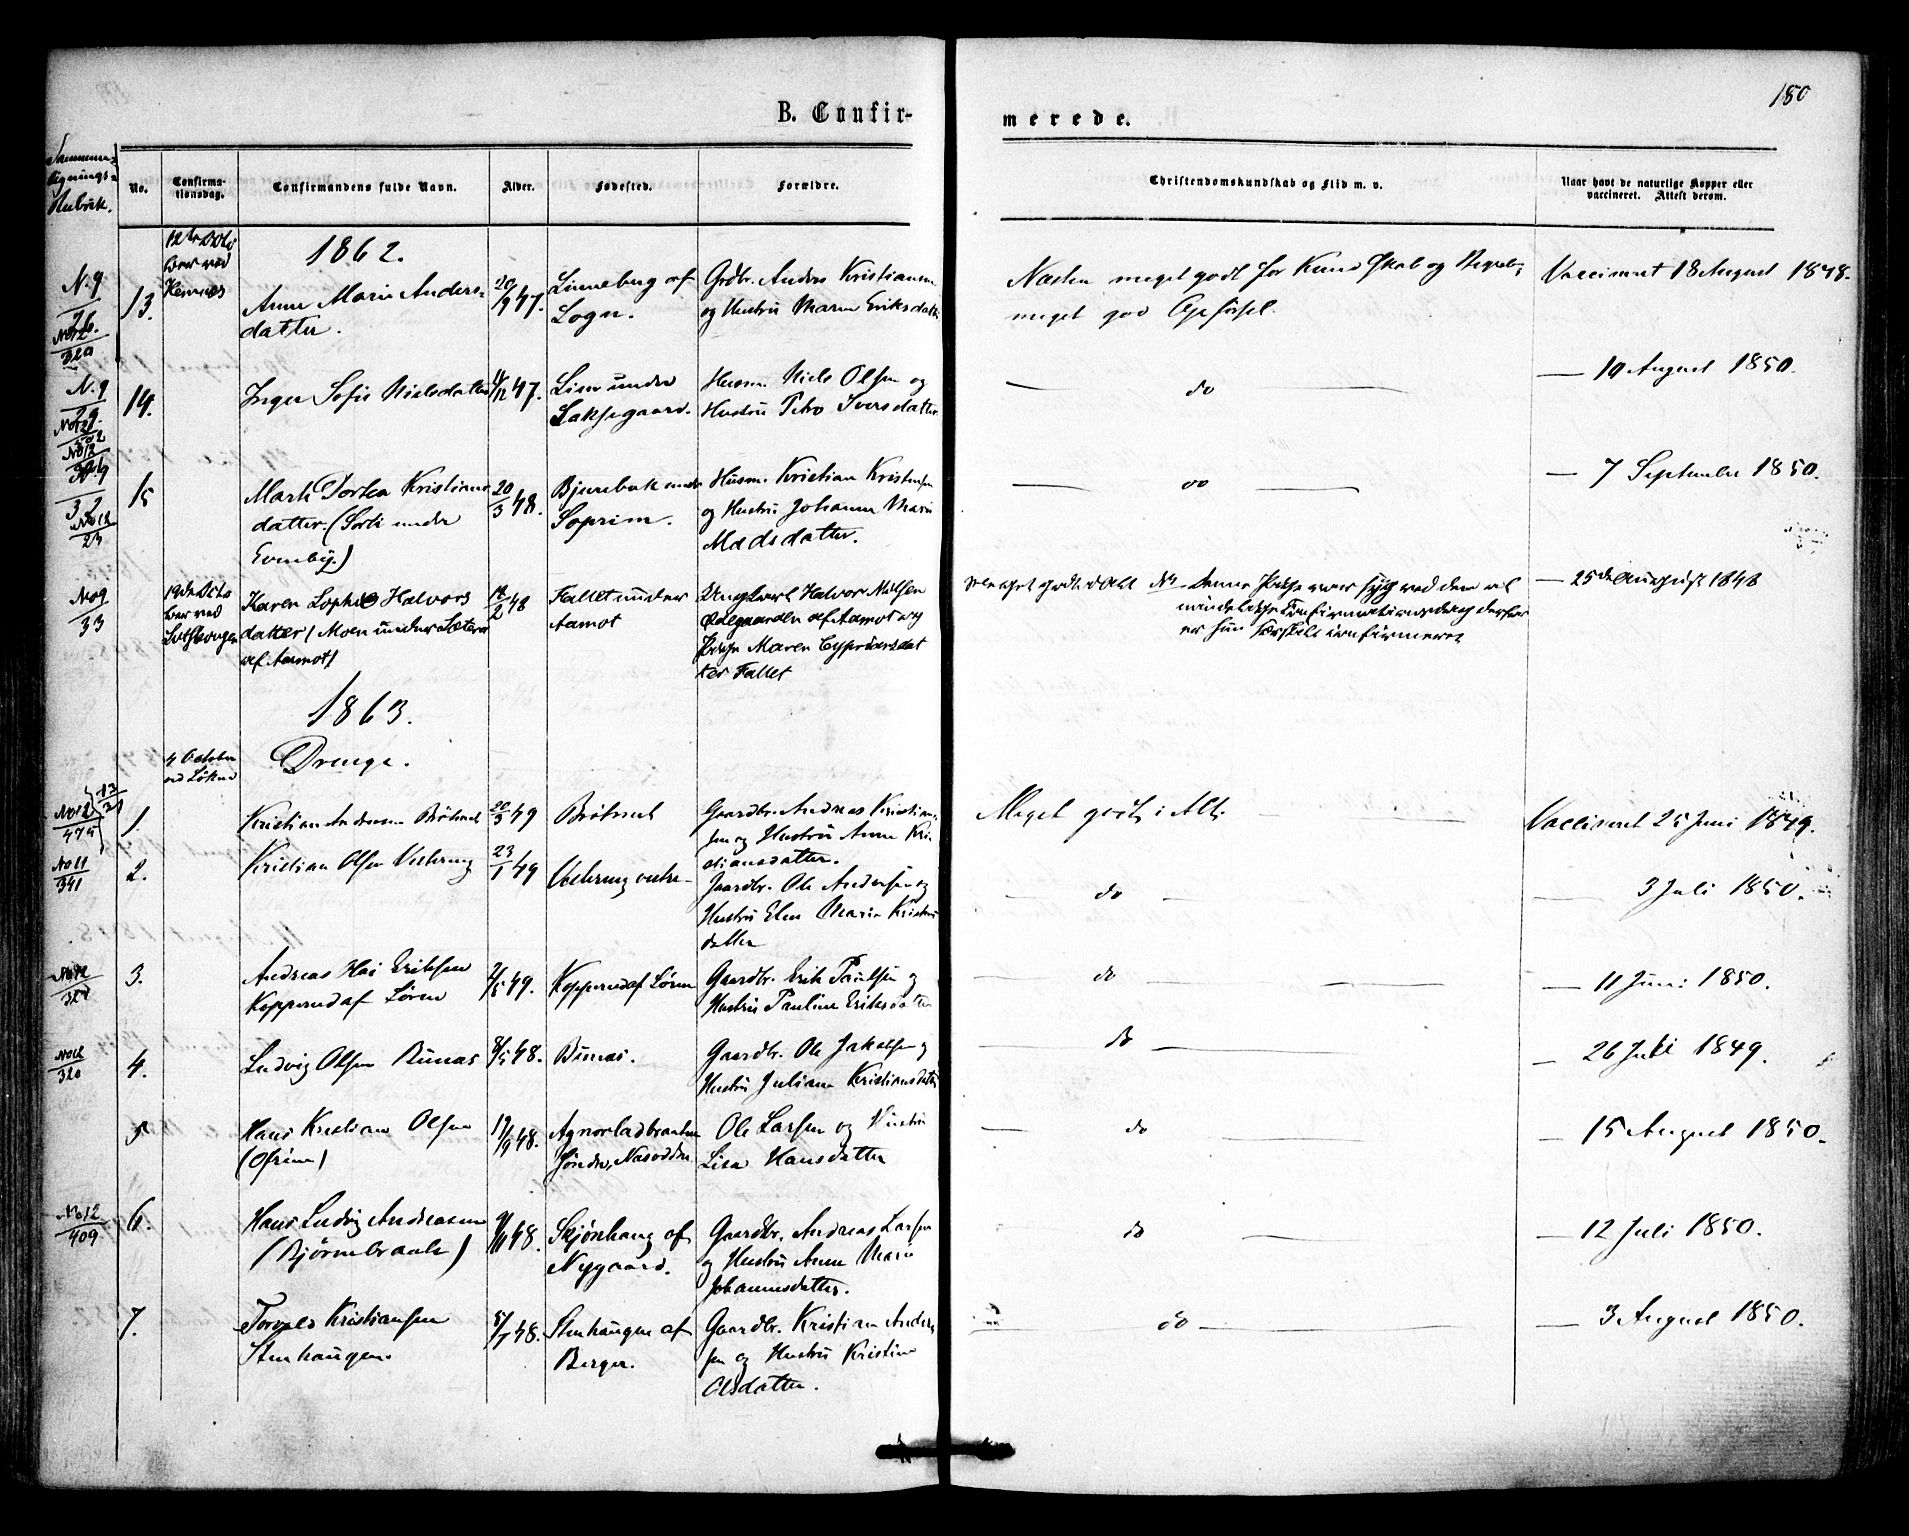 180
B. Confir-
merede.
Sammen-
lignings-
Rubrik.
No.
Confirma-
tionsdag.
Confirmandens fulde Navn.
Alder.
Fødested.
Forældre.
Christendomskundskab og Flid m. v.
Naar havt de naturlige Kopper eller
vaccineret. Attest derom.
1862.
N. 9
13.
Anne Marie Anders-
datter.
20/9 47.
Linneberg af
Sogn.
Grdbr. Anders Kristiansen
og Hustru Maren Eriksdatter
Næsten meget godt for Kundskab og
meget god Opførsel.
Vaccineret 18 August 1848.
No 12
320
N. 9
29.
14.
Inger Sofie Nielsdatter
47.
Lien under
Laksegaard.
Husm. Niels Olsen og
Hustru Petro Iversdatter
do
— 19 August 1850.
32
No 12
23
15
Marte Dortea Kristians
datter. (Sorli under
Evenby.)
20/3 48.
Bjurebæk under
Soprim.
Husm. Kristian Kristensen
og Hustru Johanne Marie
Madsdatter.
do
— 7 September 1850.
No 9
33
19de Octo
ber ved
Karen Sophie Halvors
datter / Moen under Sæteren
af Aamot /
18/2 48
Fallet under
Aamot
Ungkarl Halvor Nilsen
Ødegaarden af Aamot og
Pige Maren Cypriansdat
ter Fallet
meget godt i Alt NB Denne Pige var syg ved den al
mindelige Confirmationsdag derfor
er hun særskilt confirmeret
— 25de August 1848
1863.
4 October
ved Løken
Drenge.
No 12
475
1.
Kristian Andersen Bråtnes
20/3 49
Bråtnes
Gaardbr. Andreas Kristian-
sen og Hustru Anne Kri-
stiansdatter.
Meget godt i Alt.
Vaccineret 25 Juni 1849.
No 11
341
2.
Kristian Olsen
23/1 49
Gaardbr. Ole Andersen og
Hustru Elen Marie Kristens
datter
do
— 3 Juli 1850.
3.
Andreas Hai Eriksen
Kopperud af Løren
49.
Kopperud af Løren
Gaardbr. Erik Paulsen og
Hustru Pauline Eriksdatter
do
— 11 Juni 1850.
No 12
320
4.
Ludvig Olsen Bunæs
48.
Bunæs.
Gaardbr. Ole Jakobsen og
Hustru Juliane Kristiansdatter
do
— 26 Juli 1849.
5
Hans Kristian Olsen
19/9 48.
Søndre, Næsodden
Ole Larsen og Hustru
Lisa Hansdatter
do
— 15 August 1850.
No 12
409
6.
Hans Ludvig Andreasen
(Bjørnebraate)
48.
Skjønhaug af
Nygaard.
Gaardbr. Andreas Larsen
og Hustru Anne Marie
Johannesdatter.
do
— 12 Juli 1850.
7.
Torvald Kristiansen
Stenhaugen.
5/7 48.
Stenhaugen af
Berger.
Gaardbr. Kristian Anders
sen og Hustru Kristine
Olsdatter.
do
— 3 August 1850.